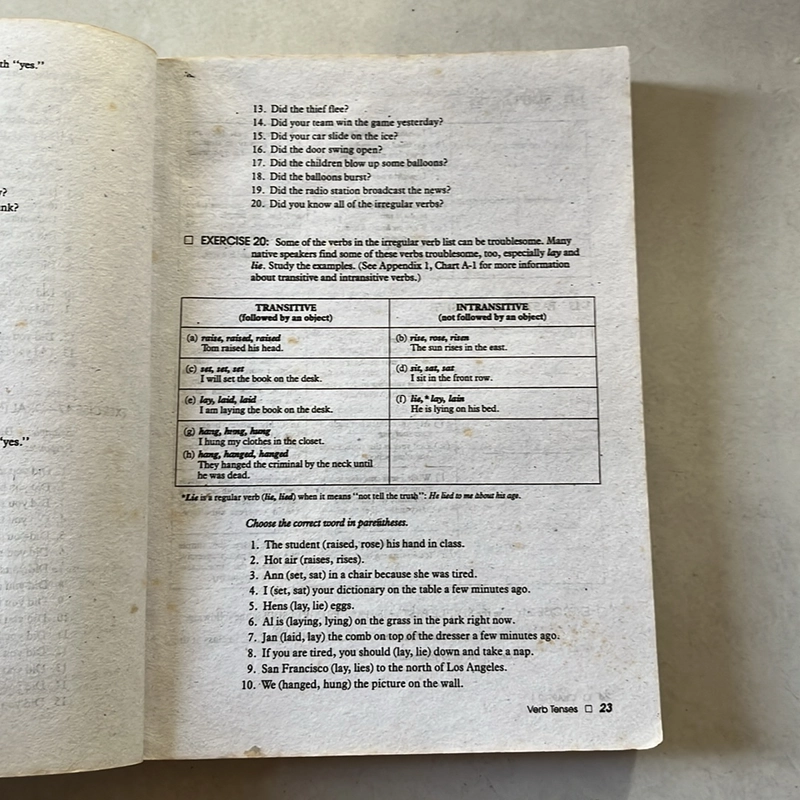 th "yes."
?
nk?
"yes."
13. Did the thief flee?
14. Did your team win the game yesterday?
15. Did your car slide on the ice?
16. Did the door swing open?
17. Did the children blow up some balloons?
18. Did the balloons burst?
19. Did the radio station broadcast the news?
20. Did you know all of the irregular verbs?
☐ EXERCISE 20: Some of the verbs in the irregular verb list can be troublesome. Many
native speakers find some of these verbs troublesome, too, especially lay and
lie. Study the examples. (See Appendix 1, Chart A-1 for more information
about transitive and intransitive verbs.)
TRANSITIVE
(followed by an object)
INTRANSITIVE
(not followed by an object)
(a) raise, raised, raised
Tom raised his head.
(b) rise, rose, risen
The sun rises in the east.
(c) set, set, set
I will set the book on the desk.
(d) sit, sat, sat
I sit in the front row.
(e) lay, laid, laid
I am laying the book on the desk.
(f) lie,* lay, lain
He is lying on his bed.
(g) hang, hung, hung
I hung my clothes in the closet.
(h) hang, hanged, hanged
They hanged the criminal by the neck until
he was dead.
*Lie is a regular verb (lie, lied) when it means "not tell the truth": He lied to me about his age.
Choose the correct word in parentheses.
1. The student (raised, rose) his hand in class.
2. Hot air (raises, rises).
3. Ann (set, sat) in a chair because she was tired.
4. I (set, sat) your dictionary on the table a few minutes ago.
5. Hens (lay, lie) eggs.
6. Al is (laying, lying) on the grass in the park right now.
7. Jan (laid, lay) the comb on top of the dresser a few minutes ago.
8. If you are tired, you should (lay, lie) down and take a nap.
9. San Francisco (lay, lies) to the north of Los Angeles.
10. We (hanged, hung) the picture on the wall.
Verb Tenses ☐ 23